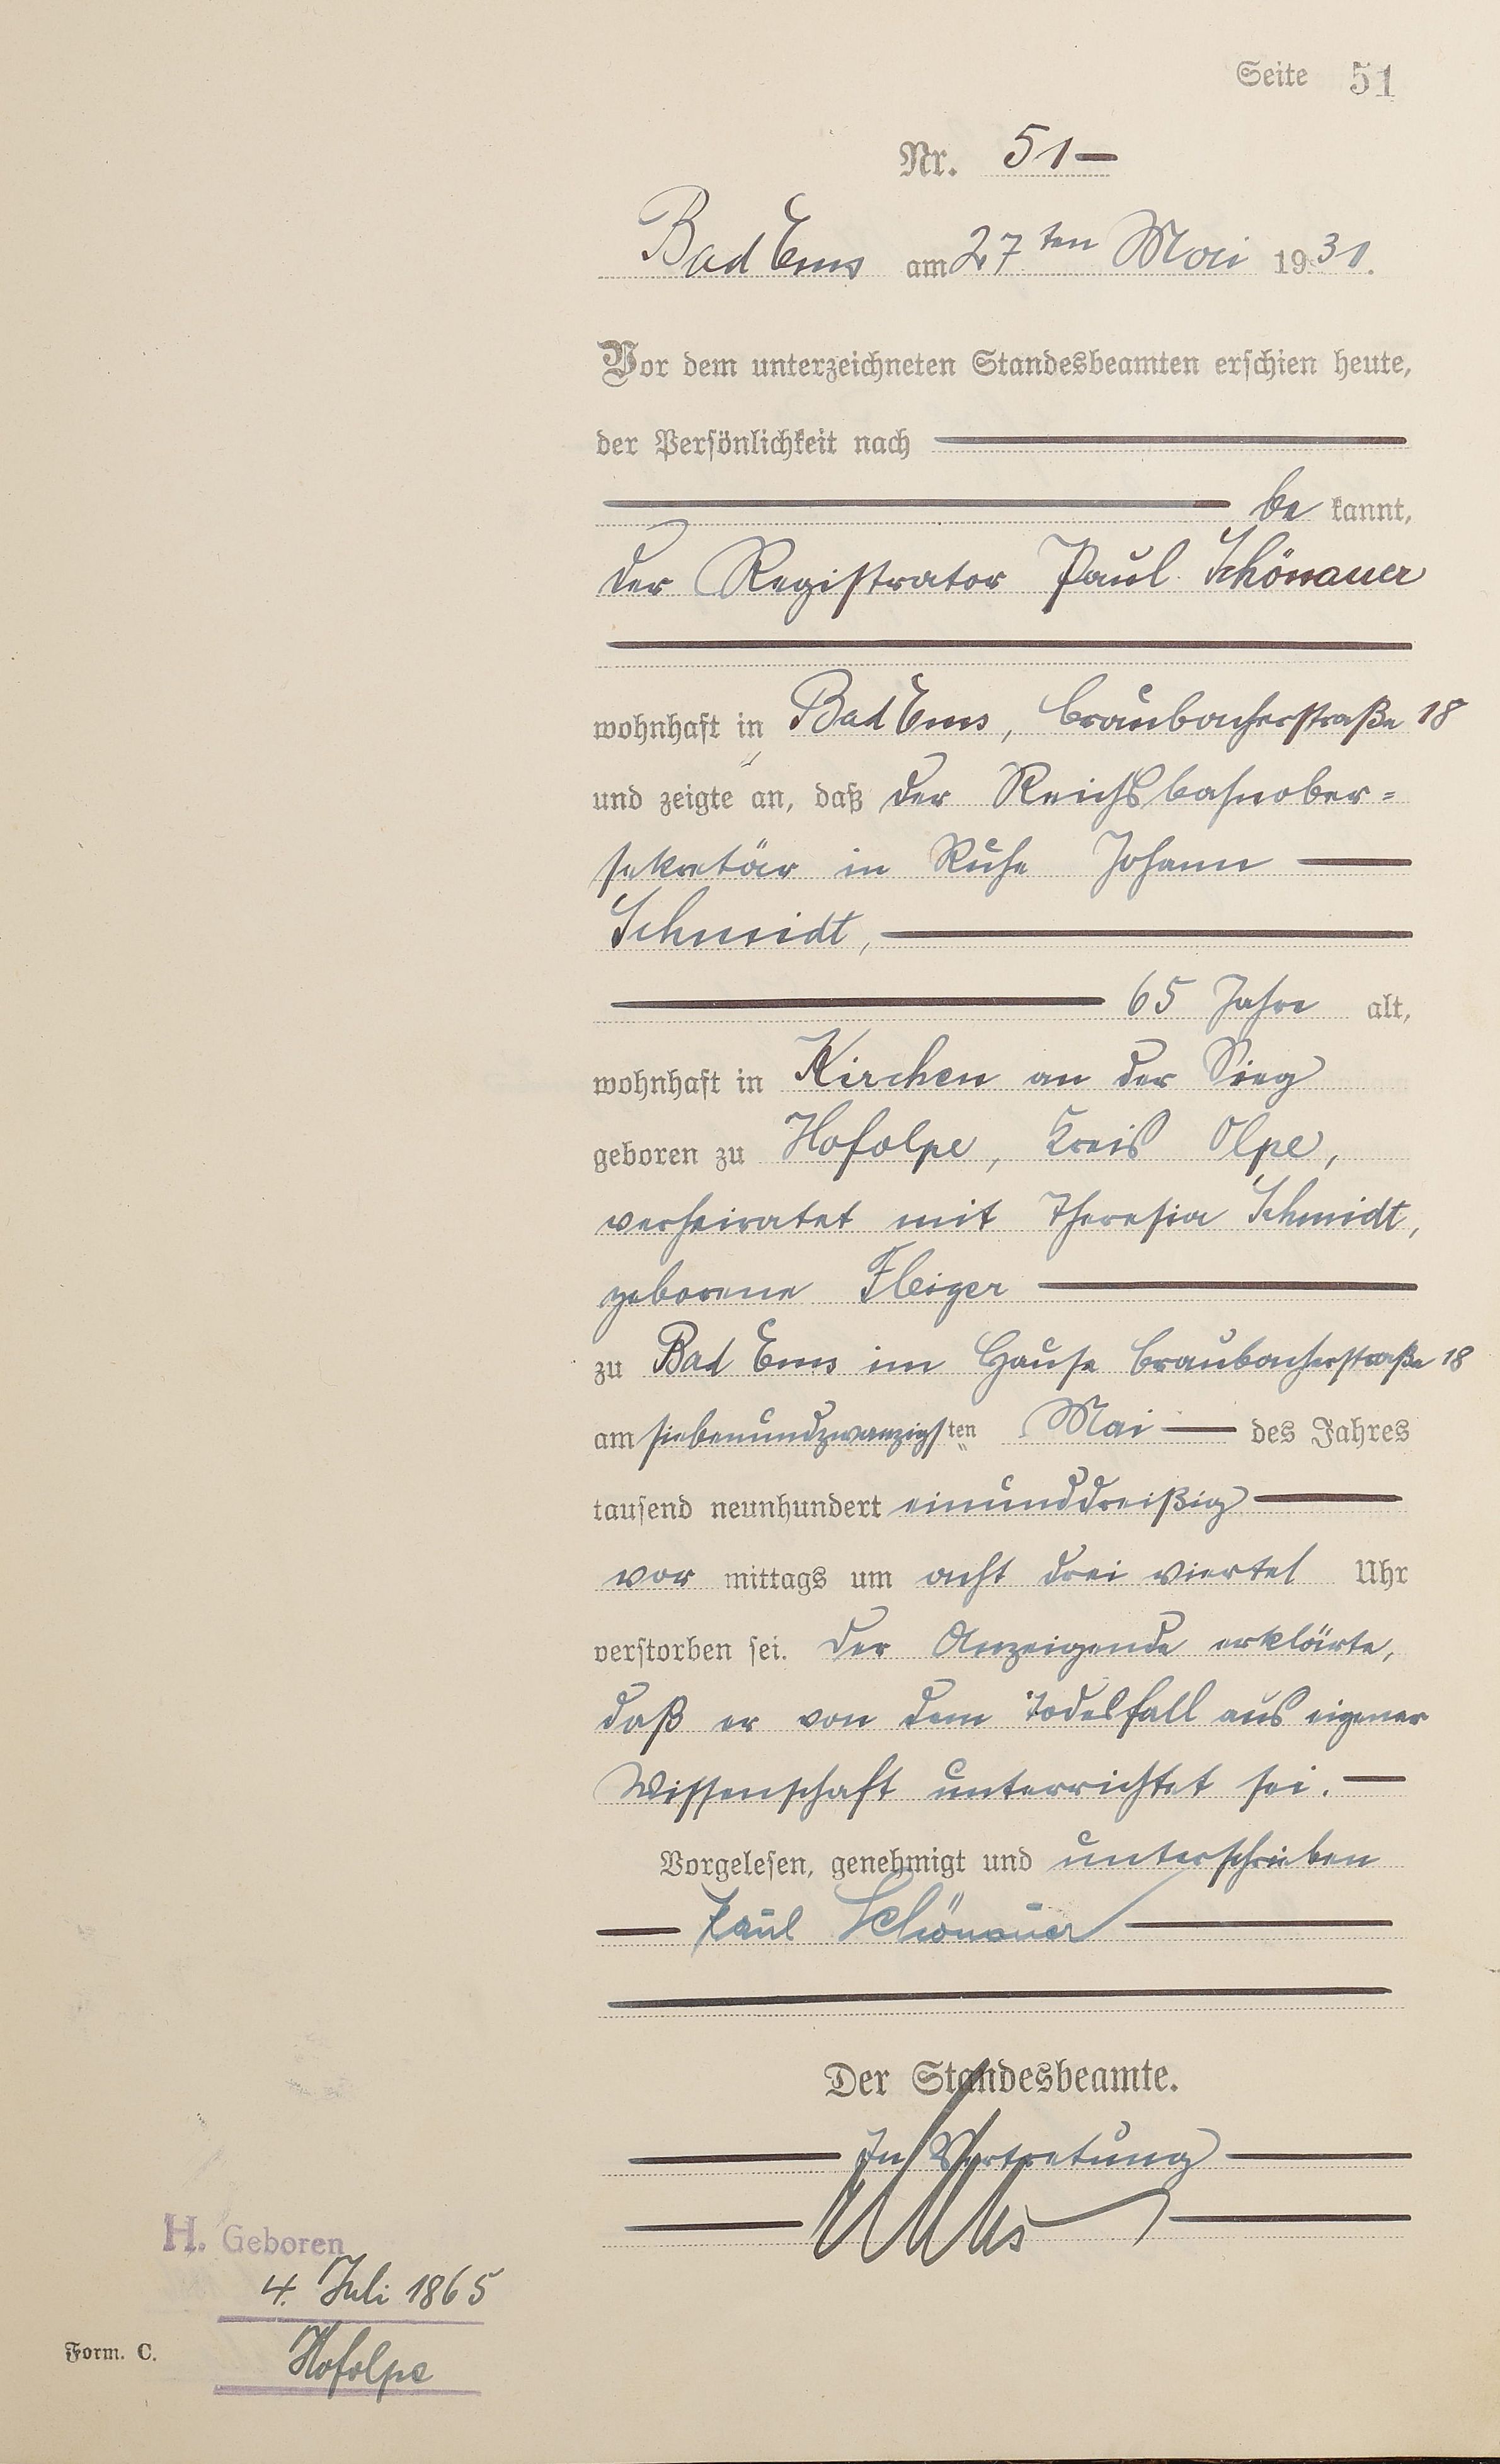 Seite 51
Nr. 51
Bad Ems am 27ten Mai 1931.
Vor dem unterzeichneten Standesbeamten erschien heute,
der Persönlichkeit nach
be kannt,
der Registrator Paul Schönauer
wohnhaft in Bad Ems, Braubacherstraße 18
und zeigte an, daß der Reichsbahnober-
sekretär in Ruhe Johann
Schmidt,
65 Jahre alt,
wohnhaft in Kirchen an der Sieg
geboren zu Hofolpe, Kreis Olpe,
verheiratet mit Theresia Schmidt,
geborene Fleiger
zu Bad Ems im Hause Braubacherstraße 18
am siebenundzwanzigsten Mai des Jahres
tausend neunhundert einunddreißig
vor mittags um acht drei viertel Uhr
verstorben sei. Der Anzeigende erklärte,
daß er von dem Todesfall aus eigener
Wissenschaft unterrichtet sei.
Vorgelesen, genehmigt und unterschrieben
Paul Schönauer
Der Standesbeamte.
In Vertretung
H. Geboren
4. Juli 1865
Hofolpe
Form. C.